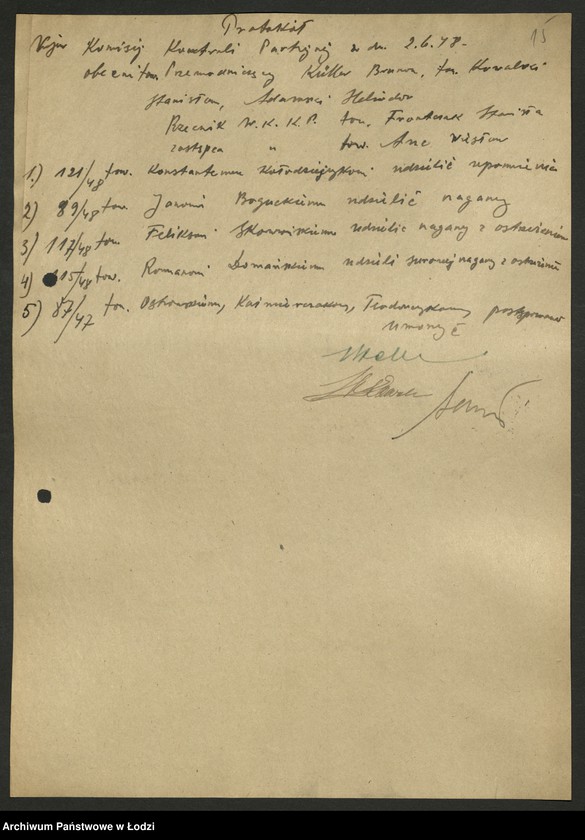 Protokół
15
Woj. Komisji Kontroli Partyjnej z dn. 2.6.48.
obecni tow. Przewodniczący Küller Bruno, tow. Kowalski
Stanisław, Adamski Heliodor
Rzecznik W.K.K.P. tow. Frontczak Stanisław
zastępca " tow. Anc Wiesław
1) 121/48 tow. Konstantemu Kołodziejczykowi udzielić upomnienia
2) 89/48 tow. Janowi Boguckiemu udzielić nagany
3) 117/48 tow. Feliksowi udzielić nagany z ostrzeżeniem
4) 115/48 tow. Romanowi Domańskiemu udzielić surowej nagany z ostrzeżeniem
5) 87/47 tow. Ostrowskiemu, Kaźmierczakowi, postępowanie
umorzyć
Archiwum Państwowe w Łodzi